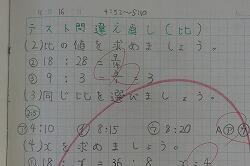 4:52〜5:40
テスト間違え直し(比)
(2)比の値を求めましょう。
② 18:28=9/14
③ 9:3=9/3=3
(3)同じ比を選びましょう。
2:5
㋐4:10 ㋑8:15 ㋒8:20 A
(4)xを求めましょう。
① 18:x=36:8 x=4